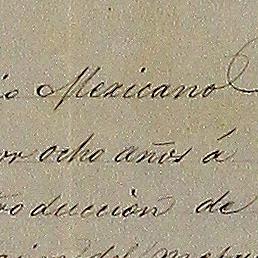 io Mexicano
or ocho años á
roducción de
del